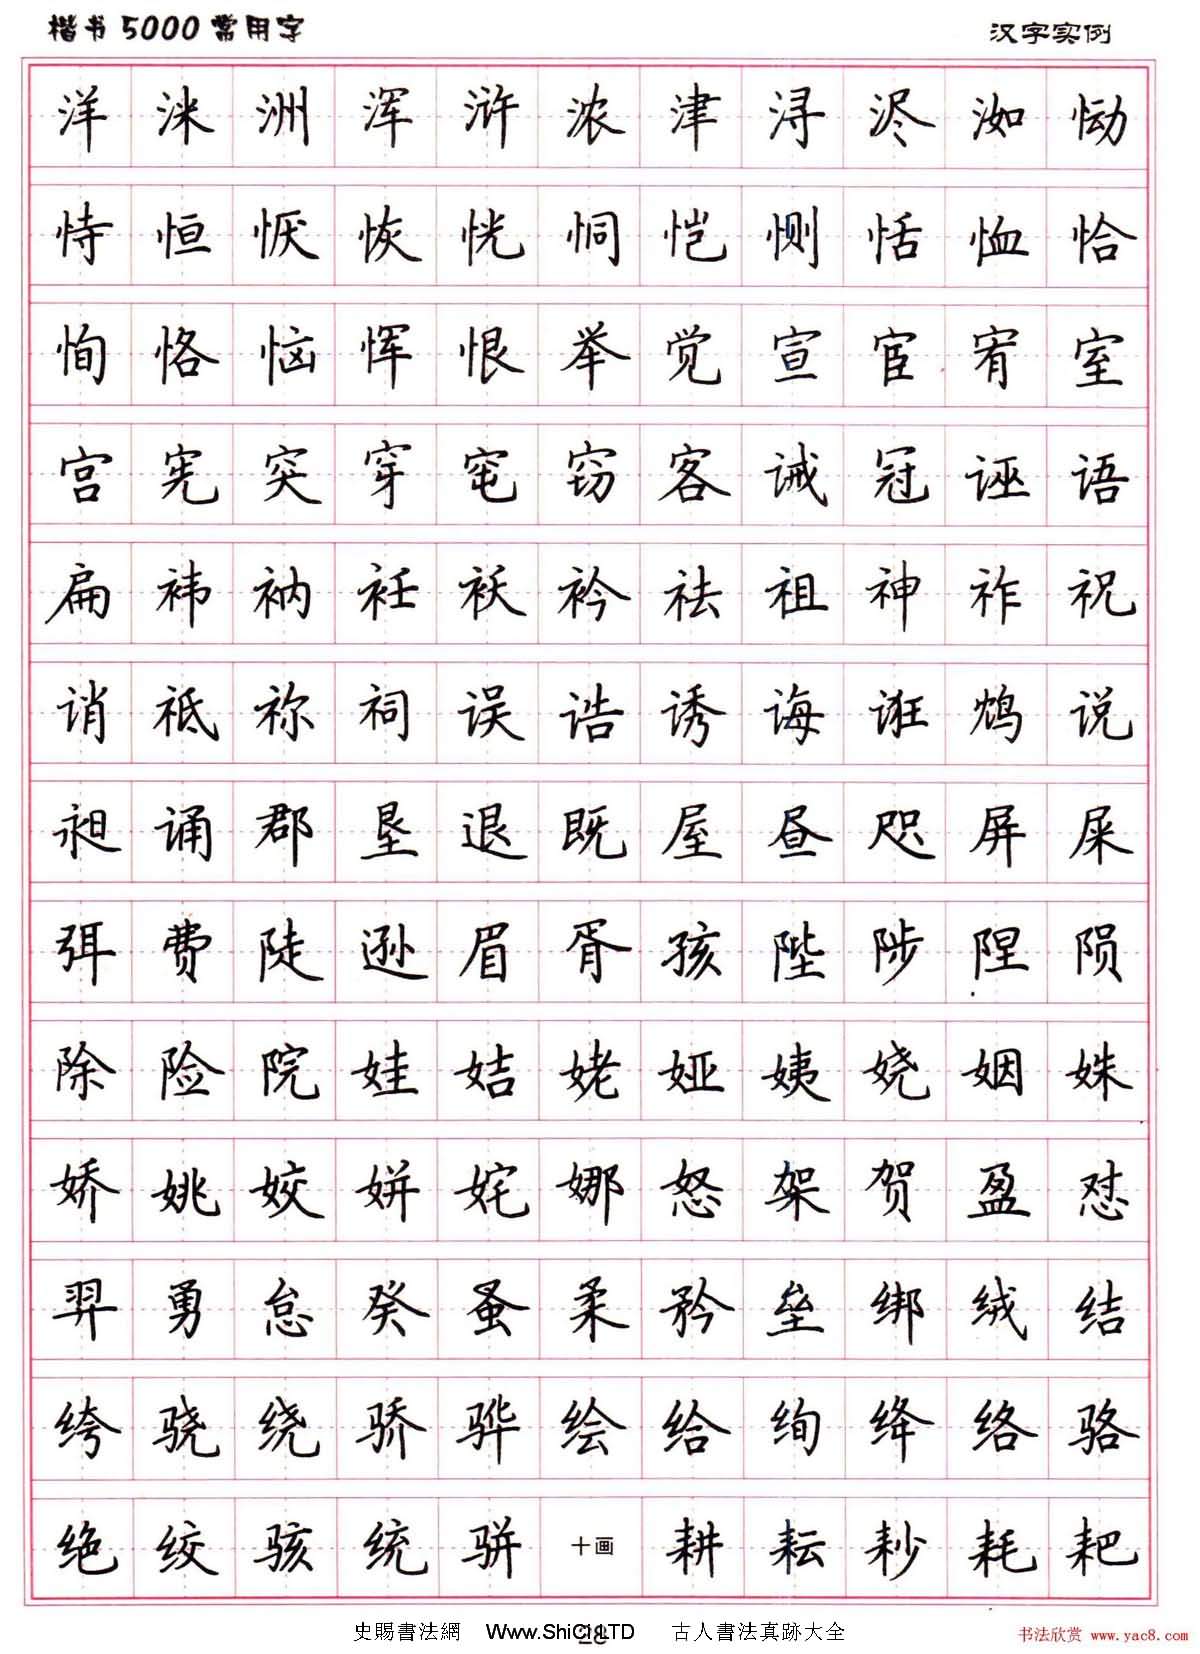 楷书5000常用字 汉字实例
洋 洣 洲 浑 浒 浓 津 浔 浕 洳 恸
恃 恒 恹 恢 恍 恫 恺 恻 恬 恤 恰
恂 恪 恼 恽 恨 举 觉 宣 宦 宥 室
宫 宪 突 穿 窀 窃 客 诫 冠 诬 语
扁 袆 衲 衽 袄 衿 祛 祖 神 祚 祝
诮 祗 祢 祠 误 诰 诱 诲 诳 鸩 说
昶 诵 郡 垦 退 既 屋 昼 咫 屏 屎
弭 费 陡 逊 眉 胥 孩 陛 陟 陧 陨
除 险 院 娃 姞 姥 娅 姨 娆 姻 姝
娇 姚 姣 姘 姹 娜 怒 架 贺 盈 怼
羿 勇 怠 癸 蚤 柔 矜 垒 绑 绒 结
绔 骁 绕 骄 骅 绘 给 绚 绛 络 骆
绝 绞 骇 统 骈 十画 耕 耘 耖 耗 耙
史賜書法網 Www.ShiCi.LTD 古人書法真跡大全
书法欣赏 www.yac8.com